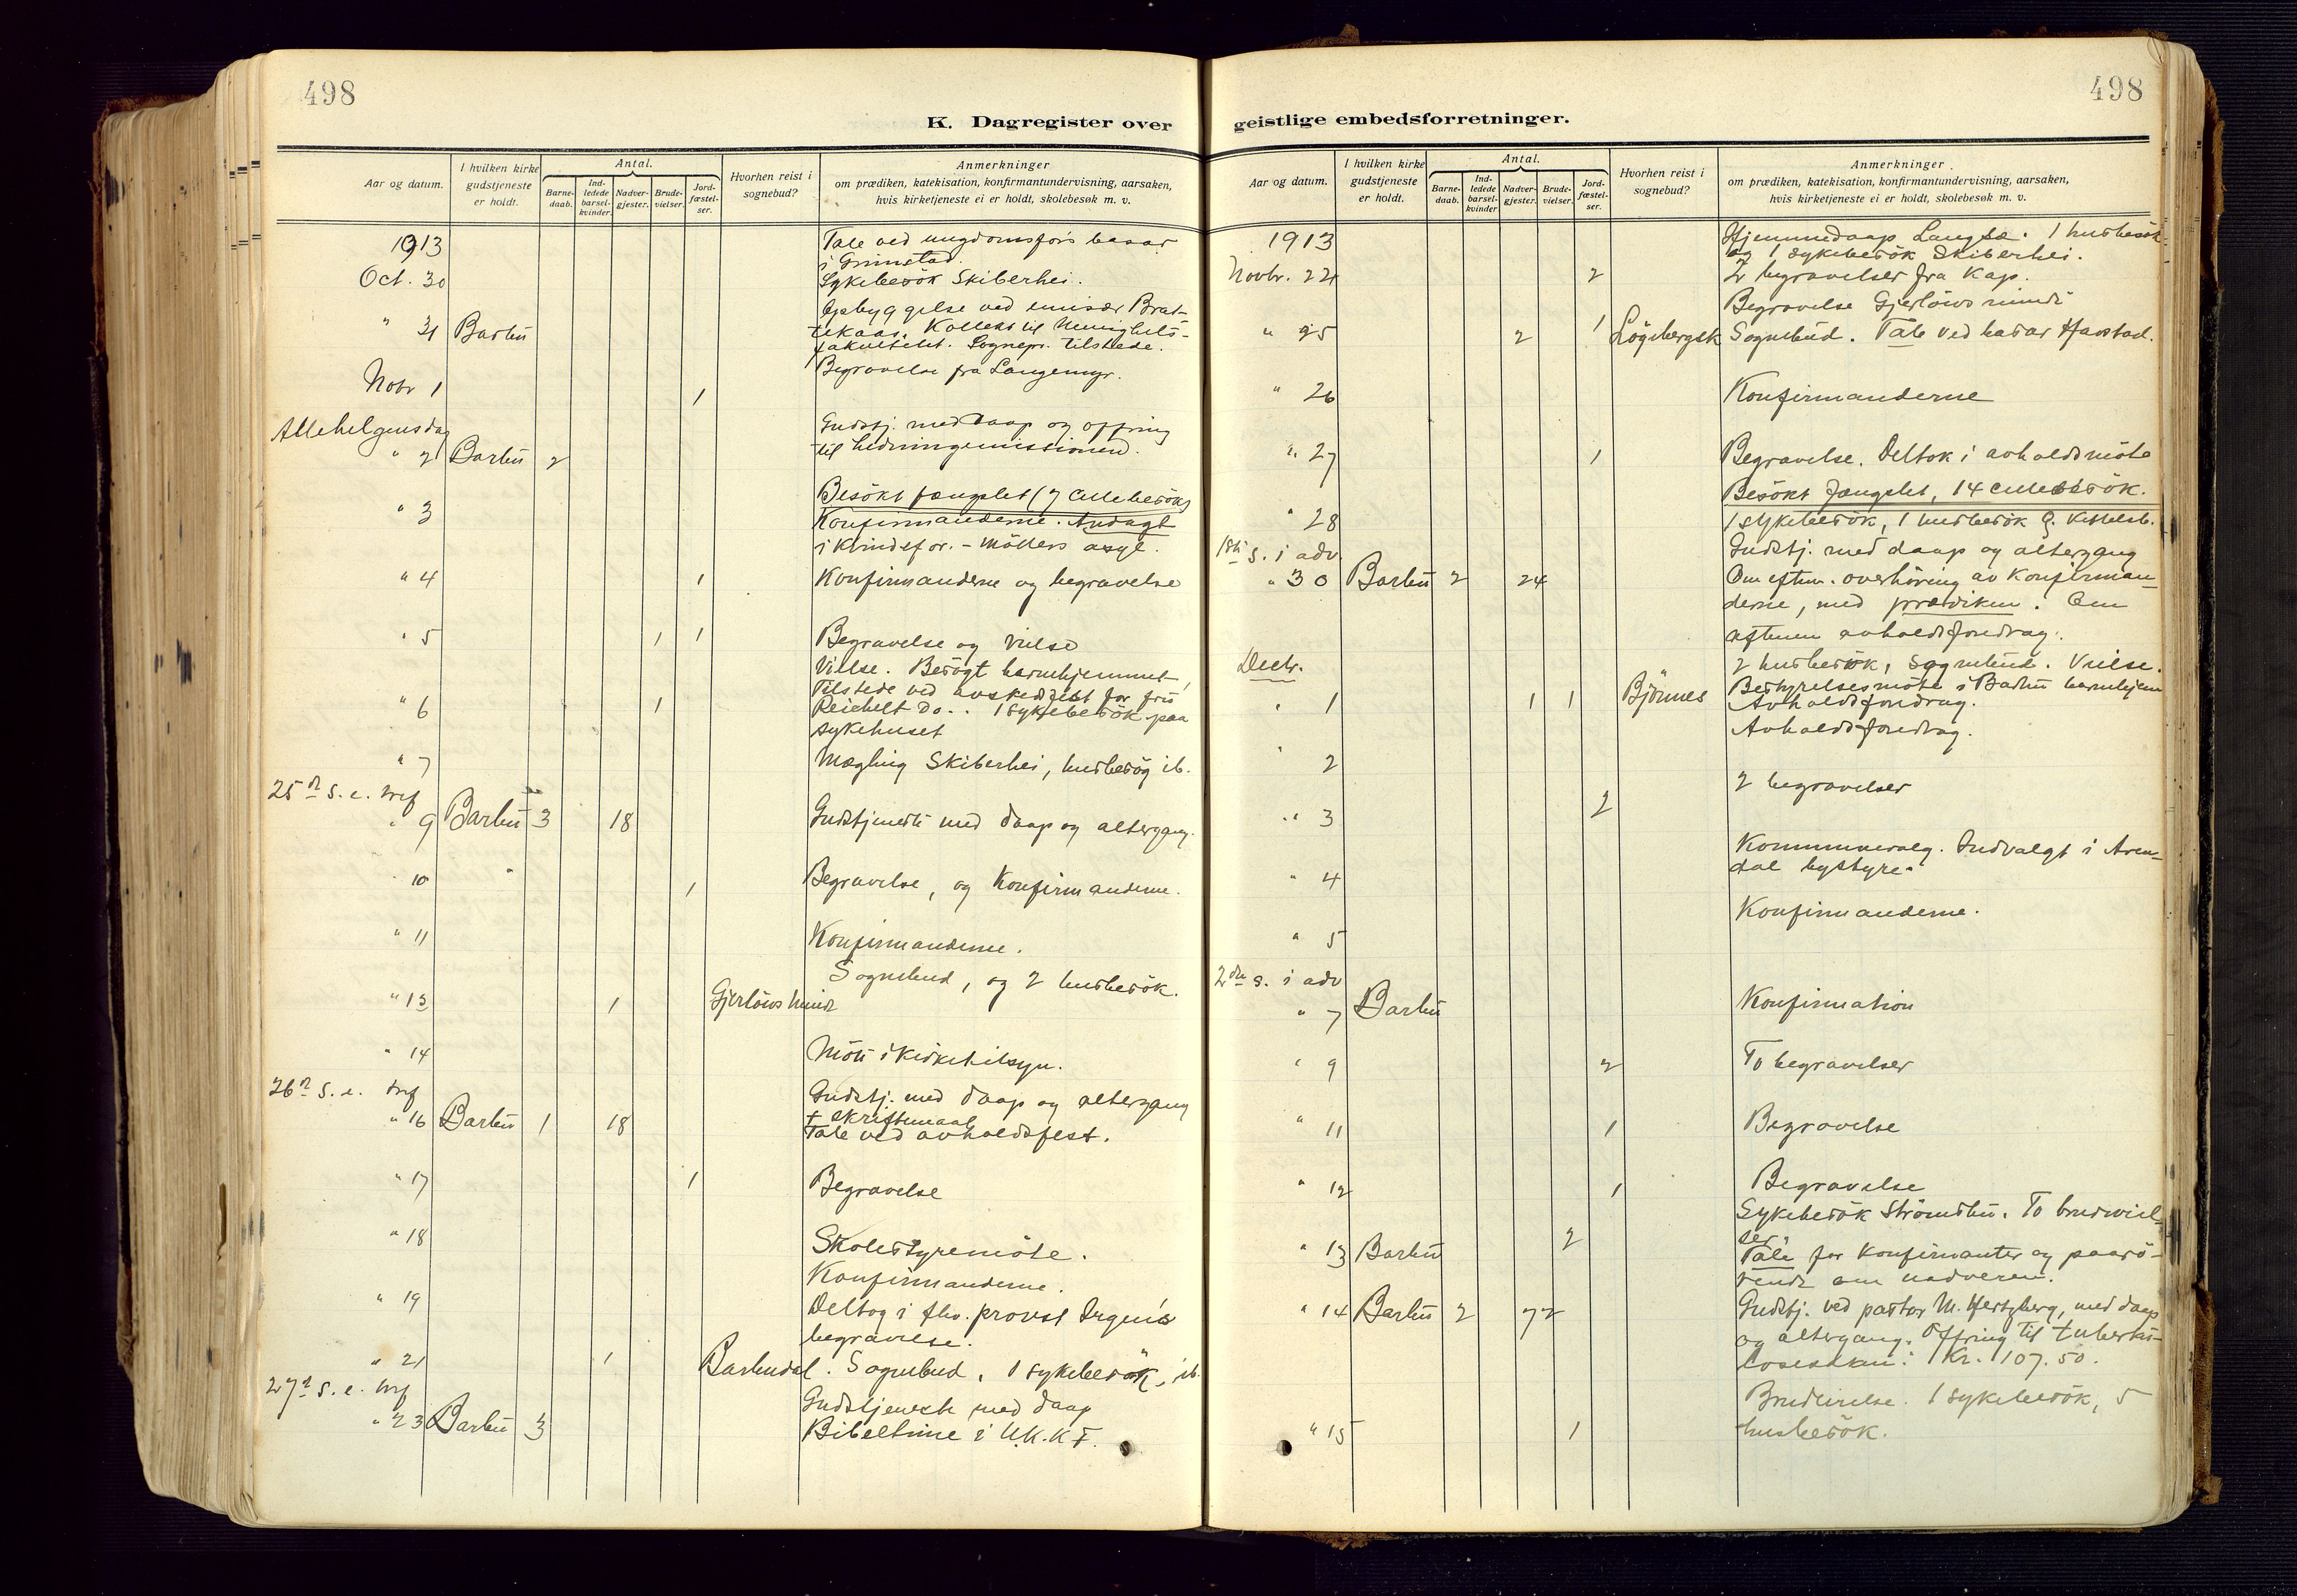 498
K. Dagregister over
Aar og datum.
I hvilken kirke gudstjeneste er holdt.
Antal.
Barne-daab.
Ind-ledede barsel-kvinder.
Nadver-gjester.
Brude-vielser.
Jord-fæstel-ser.
Hvorhen reist i sognebud?
Anmerkninger
om prædiken, katekisation, konfirmantundervisning, aarsaken,
hvis kirketjeneste ei er holdt, skolebesøk m. v.
1913
Tale ved ungdomsfor's basar
i Grimstad.
Oct. 30 Sykebesök Skiberhei.
Opbyggelse ved emisær Brat-
" 31 Barbu tekaas. Kollekt til Menighets-
fakultetet. Sognepr. tilstede.
Begravelse fra Langemyr.
Novbr 1 1
Allehelgensdag
Gudstj. med daap og offring
" 2 Barbu 2 til hedningemissionen.
Besökt fængslet (7 cellebesök)
" 3 Konfirmanderne. Andagt
i Kvindefor. - Möllers asyl.
" 4 1 Konfirmanderne og begravelse
" 5 1 1 Begravelse og vielse
Vielse. Besögt barnehjemmet,
Tilstede ved avskedsfest for frü
" 6 1 Reichelt do.. 1 sykebesök paa
sykehuset
" 7 Mægling Skiberhei, husbesög ib.
25de s. e. tref
" 9 Barbu 3 18 Gudstjeneste med daap og altergang.
" 10 " 1 Begravelse, og Konfirmanderne.
" 11 Konfirmanderne.
Sognebud, og 2 husbesök.
" 13 1 Gjerlöws minde
" 14 Möte i Kirketilsyn.
26de s. e. tref
Gudstj. med daap og altergang
+ skriftemaal
" 16 Barbu 1 18 Tale ved avholdsfest.
" 17 1 Begravelse
" 18 Skolestyremöte.
Konfirmanderne.
" 19 Deltog i fhv. provst Irgens's
begravelse.
" 21 1 Barbudal. Sognebud. 1 sykebesök, ib.
27de s. e. tref
Gudstjeneste med daap
" 23 Barbu 3 Bibeltime i U.K.K.F.
498
geistlige embedsforretninger.
Aar og datum.
I hvilken kirke gudstjeneste er holdt.
Antal.
Barne-daab.
Ind-ledede barsel-kvinder
Nadver-gjester.
Brude-vielser.
Jord-fæstel-ser.
Hvorhen reist i sognebud?
Anmerkninger
om prædiken, katekisation, konfirmantundervisning, aarsaken,
hvis kirketjeneste ei er holdt, skolebesøk m. v.
1913
Hjemmedaap Langsæ. 1 husbesök
og 1 sykebesök Skiberhei.
Novbr. 24 2 2 begravelser fra Kap.
Begravelse Gjerlöws minde
" 25 2 1 Lögebergsk Sognebud. Tale ved basar Havstad.
" 26 Konfirmanderne
" 27 1 Begravelse. Deltok i avholdsmöte
Besökt fængslet, 14 cellebesök.
" 28 1 sykebesök, 1 husbesök G. Kittelsb.
1ste s. i adv.
Gudstj. med daap og altergang
" 30 Barbu 2 24 Om efterm. overhöring av Konfirman-
derne, med prædiken. Om
aftenen avholdsforedrag.
Decbr.
2 husbesök, Sognebud. Vielse.
Bestyrelsesmöte i Barbu barnehjem
" 1 1 1 Björnnes Avholdsforedrag.
Avholdsforedrag.
" 2
2 begravelser
" 3 2
Kommunevalg. Indvalgt i Aren-
" 4 dal bystyre.
Konfirmanderne.
" 5
2den s. i adv
" 7 Barbu Konfirmation
" 9 2 To begravelser
" 11 1 Begravelse
" 12 1 Begravelse
Sykebesök Strömsbu. To brudeviel-
ser.
" 13 Barbu 2 Tale for Konfirmanter og paarö-
rende om nadveren.
" 14 Barbu 2 72 Gudstj. ved pastor M. Hertzberg, med daap
og altergang. Offring til tuberku-
losesaken: Kr. 107.50.
Brudevielse. 1 sykebesök, 5
" 15 1 husbesök.